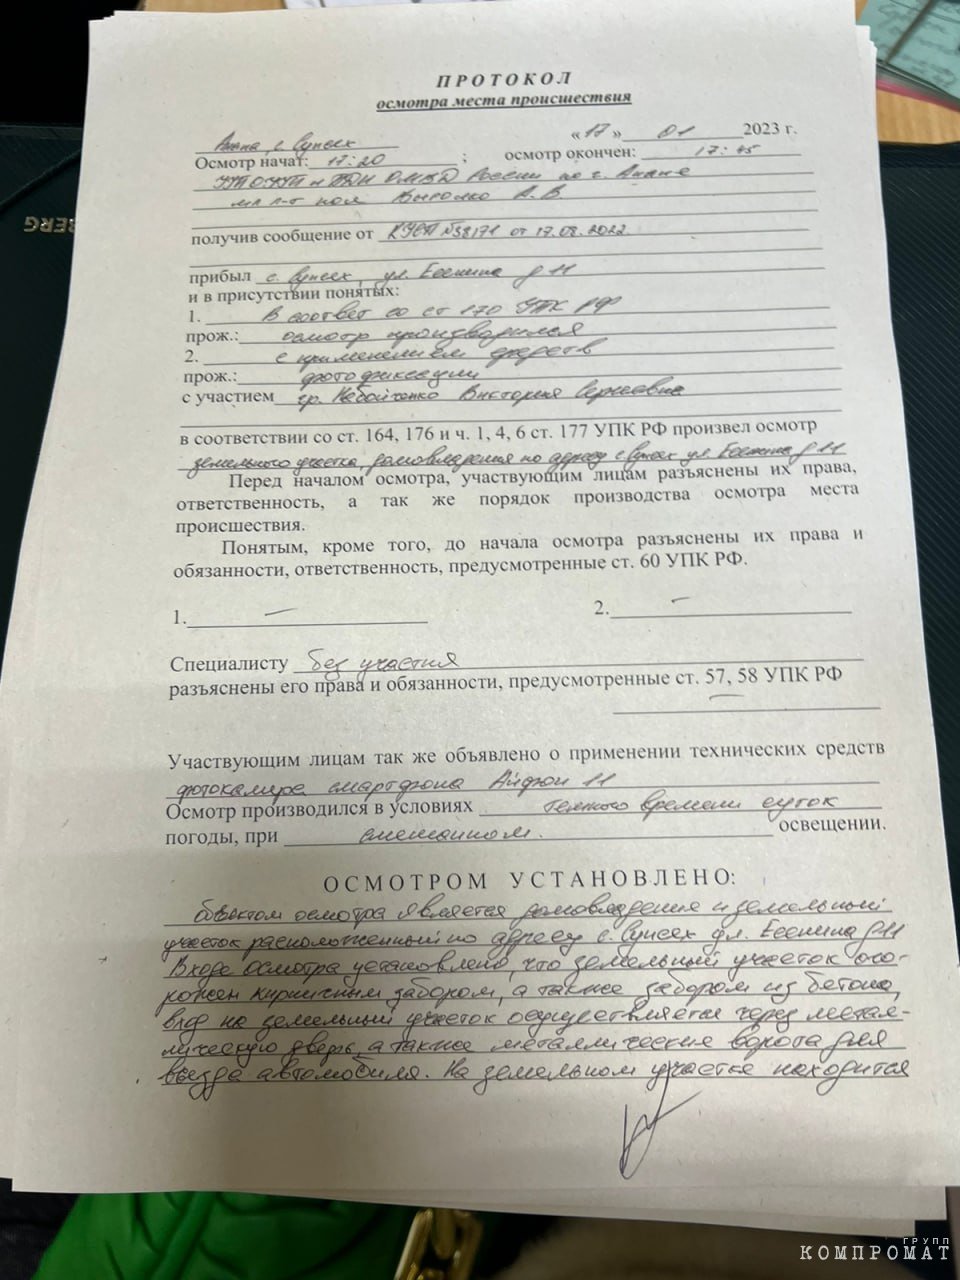 ПРОТОКОЛ
осмотра места происшествия
Анапа, с. Супсех
«17» 01 2023 г.
Осмотр начат: 17:20 ; осмотр окончен: 17:45
и ПДН ОМВД России по г. Анапе
мл л-т пол А.В.
получив сообщение от КУСП №38171 от 17.08.2022
прибыл с. Супсех, ул. Есенина д 11
и в присутствии понятых:
1. В соответ со ст 170 УПК РФ
прож.: осмотр производился
2. с применением средств
прож.: фотофиксации
с участием гр. Небойченко Виктория Сергеевна
в соответствии со ст. 164, 176 и ч. 1, 4, 6 ст. 177 УПК РФ произвел осмотр
земельного участка, домовладения по адресу с Супсех ул. Есенина д 11
Перед началом осмотра, участвующим лицам разъяснены их права,
ответственность, а так же порядок производства осмотра места
происшествия.
Понятым, кроме того, до начала осмотра разъяснены их права и
обязанности, ответственность, предусмотренные ст. 60 УПК РФ.
1. — 2. —
Специалисту без участия
разъяснены его права и обязанности, предусмотренные ст. 57, 58 УПК РФ
—
Участвующим лицам так же объявлено о применении технических средств
фотокамера смартфона Айфон 11
Осмотр производился в условиях темного времени суток
погоды, при смешанном. освещении.
ОСМОТРОМ УСТАНОВЛЕНО:
объектом осмотра является домовладение и земельный
участок расположенный по адресу с. Супсех ул. Есенина д 11
В ходе осмотра установлено, что земельный участок ого-
рожен кирпичным забором, а также забором из бетона,
вход на земельный участок осуществляется через метал-
лическую дверь, а также металлические ворота для
въезда автомобиля. На земельном участке находится
ГРУПП
КОМПРОМАТ